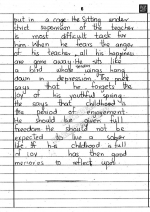 put in a cage the sitting under
strict supervision of the teacher
is most difficult task for
him. When he tears the anger
of his teacher, all his happiness
are gone away. He sits like
a bird whole wings hang
down in depression. The poet
says that he forgets the
joy of his youthful spring.
He says that childhood is
the period of enjoyment.
He should be given full
freedom. He should not be
expected to live a sober
life. If his childhood is full
of joy has then good
memories to reflect upon.